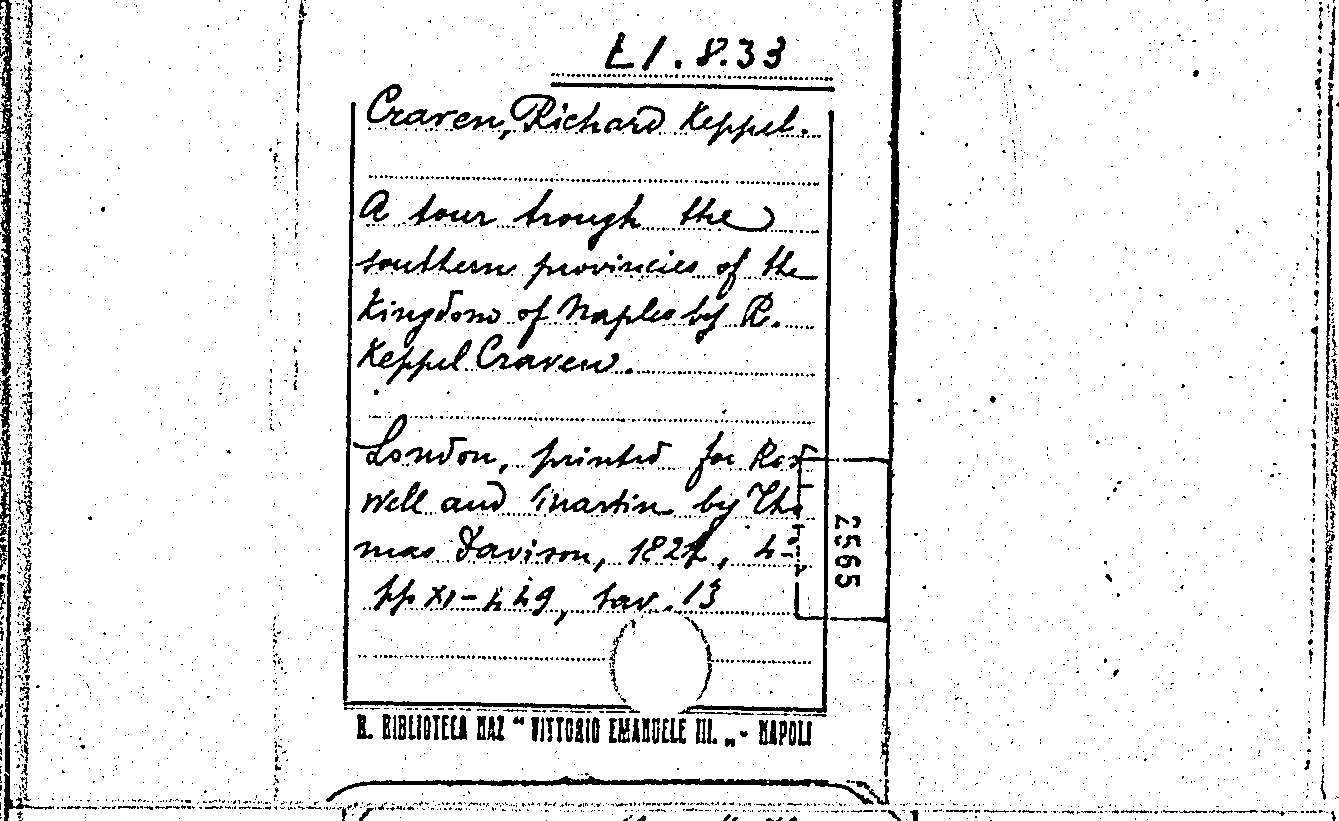 Ł1.8.33
Craven, Richard Keppel.
A tour trough the
southern provincies of the
Kingdom of Naples by R.
Keppel Craven.
London, printed for Rod
well and Martin by Tho
mas Davison, 1821, 4°
pp XI-449, tav. 13
2565
R. BIBLIOTECA NAZ "VITTORIO EMANUELE III. „ - NAPOLI